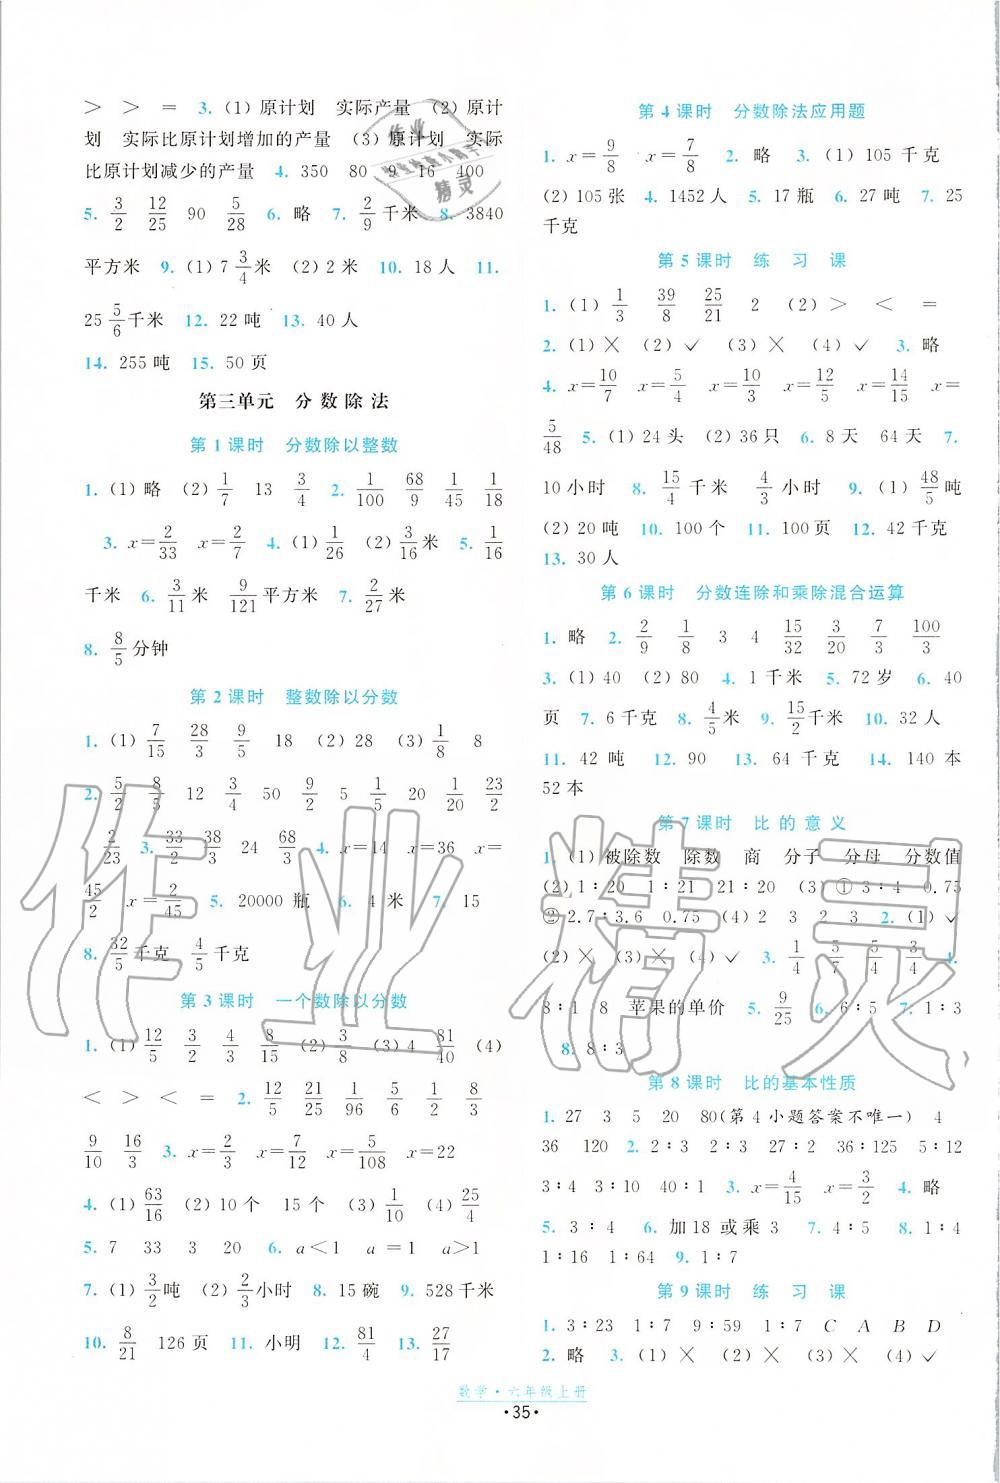 ＞　＞　＝　3. (1)原计划　实际产量　(2)原计
划　实际比原计划增加的产量　(3)原计划　实际
比原计划减少的产量　4. 350　80　9　16　400
5. 3/2　12/25　90　5/28　6. 略　7. 2/9千米　8. 3840
平方米　9. (1)7 3/4米　(2)2米　10. 18人　11.
25 5/6千米　12. 22吨　13. 40人
14. 255吨　15. 50页
第三单元　分数除法
第1课时　分数除以整数
1. (1)略　(2)1/7　13　3/4　2. 1/100　68/9　1/45　1/18
3. x=2/33　x=2/7　4. (1)1/26　(2)3/16米　5. 1/16
千米　6. 3/11米　9/121平方米　7. 2/27米
8. 8/5分钟
第2课时　整数除以分数
1. (1)7/15　28/3　9/5　18　(2)28　(3)1/8　8
2. 5/2　8/5　12　3/4　50　9/2　5　1/5　20　1/20　23/2
2/23　3. 33/2　38/3　24　68/3　4. x=14　x=36　x=
45/2　x=2/45　5. 20000瓶　6. 4米　7. 15
8. 32/5千克　4/5千克
第3课时　一个数除以分数
1. (1)12/5　3/2　4/3　8/15　(2)3/8　(3)4　81/40　(4)
＜　＞　＜　＝　2. 12/5　21/25　1/96　5/6　1/2　8/3
9/10　16/3　3. x=2/3　x=7/12　x=5/108　x=22
4. (1)63/16　(2)10个　15个　(3)1/10　(4)25/4
5. 7　33　3　20　6. a＜1　a=1　a＞1
7. (1)3/2吨　(2)2/3小时　8. 15碗　9. 528千米
10. 8/21　126页　11. 小明　12. 81/4　13. 27/17
第4课时　分数除法应用题
1. x=9/8　x=7/8　2. 略　3. (1)105千克
(2)105张　4. 1452人　5. 17瓶　6. 27吨　7. 25
千克
第5课时　练　习　课
1. (1)1/3　39/8　25/21　2　(2)＞　＜　＝
2. (1)×　(2)✓　(3)×　(4)✓　3. 略
4. x=10/7　x=5/4　x=10/3　x=12/5　x=14/15　x=
5/48　5. (1)24头　(2)36只　6. 8天　64天　7.
10小时　8. 15/4千米　4/3小时　9. (1)48/5吨
(2)20吨　10. 100个　11. 100页　12. 42千克
13. 30人
第6课时　分数连除和乘除混合运算
1. 略　2. 2/9　1/8　3　4　15/32　3/20　7/3　100/3
3. (1)40　(2)80　4. 1千米　5. 72岁　6. 40
页　7. 6千克　8. 4/5米　9. 15/2千米　10. 32人
11. 42吨　12. 90　13. 64千克　14. 140本
52本
第7课时　比的意义
1. (1)被除数　除数　商　分子　分母　分数值
(2)1∶20　1∶21　21∶20　(3)①3∶4　0.75
②2.7∶3.6　0.75　(4)2　3　2　3　2. (1)✓
(2)×　(3)×　(4)✓　3. 1/4　5/4　5/4　3/4　4.
8∶1　8　苹果的单价　5. 9/25　6. 6∶5　7. 1∶3
8. 8∶3
第8课时　比的基本性质
1. 27　3　5　20　80(第4小题答案不唯一)　4
36　120　2. 2∶3　2∶3　27∶2　36∶125　5∶12
3∶4　3∶10　40∶1　3. x=4/15　x=3/2　4. 略
5. 3∶4　6. 加18或乘3　7. 4∶5　8. 1∶4
1∶16　1∶64　9. 1∶7
第9课时　练　习　课
1. 3∶23　1∶7　9∶59　1∶7　C　A　B　D
2. 略　3. (1)×　(2)×　(3)×　(4)✓
数学·六年级上册
·35·
作业精灵